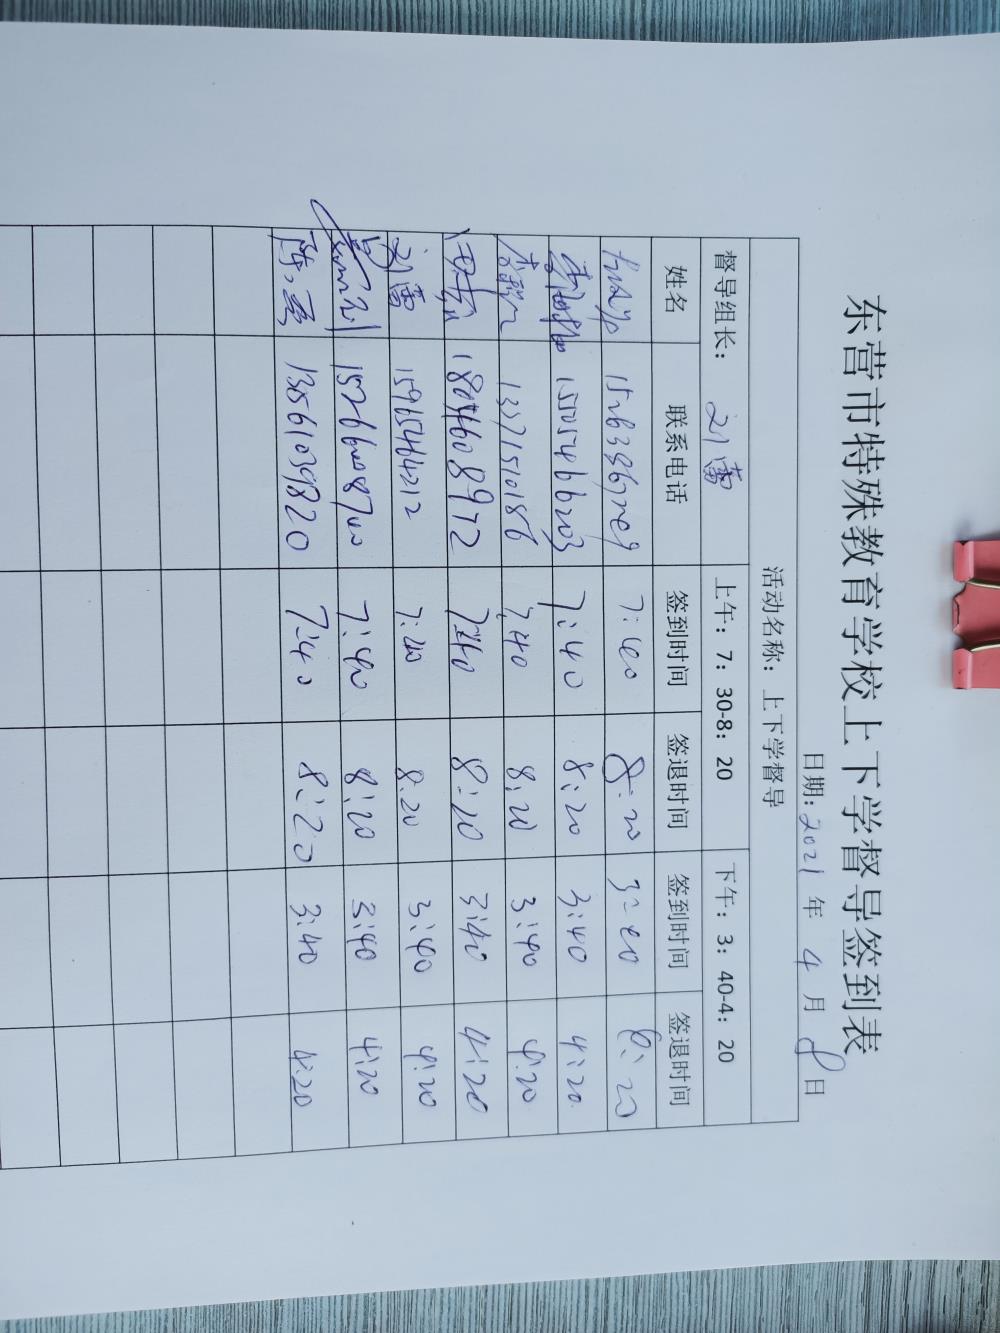 东营市特殊教育学校上下学督导签到表
日期: 2021 年 4 月 8 日
活动名称: 上下学督导
督导组长: 刘雷 上午: 7: 30-8: 20 下午: 3: 40-4: 20
姓名 联系电话 签到时间 签退时间 签到时间 签退时间
7:40 8:20 3:40
1505466203 7:40 8:20 3:40 4:20
13371510186 7:40 8:20 3:40 4:20
18054608972 7:40 8:20 3:40 4:20
刘雷 15965464212 7:40 8:20 3:40 4:20
7:40 8:20 3:40 4:20
13561039820 7:40 8:20 3:40 4:20